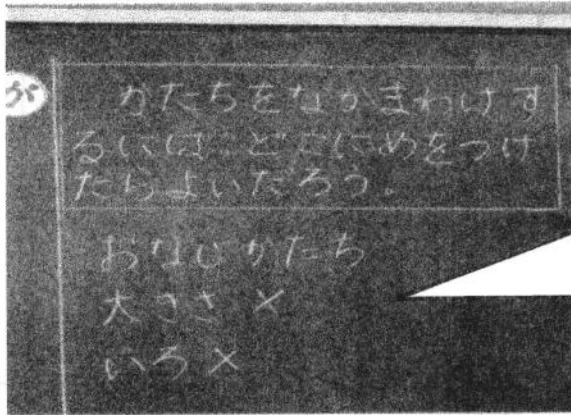 が
かたちをなかまわけす
るには どこにめをつけ
たらよいだろう。
おなじかたち
大きさ×
いろ×